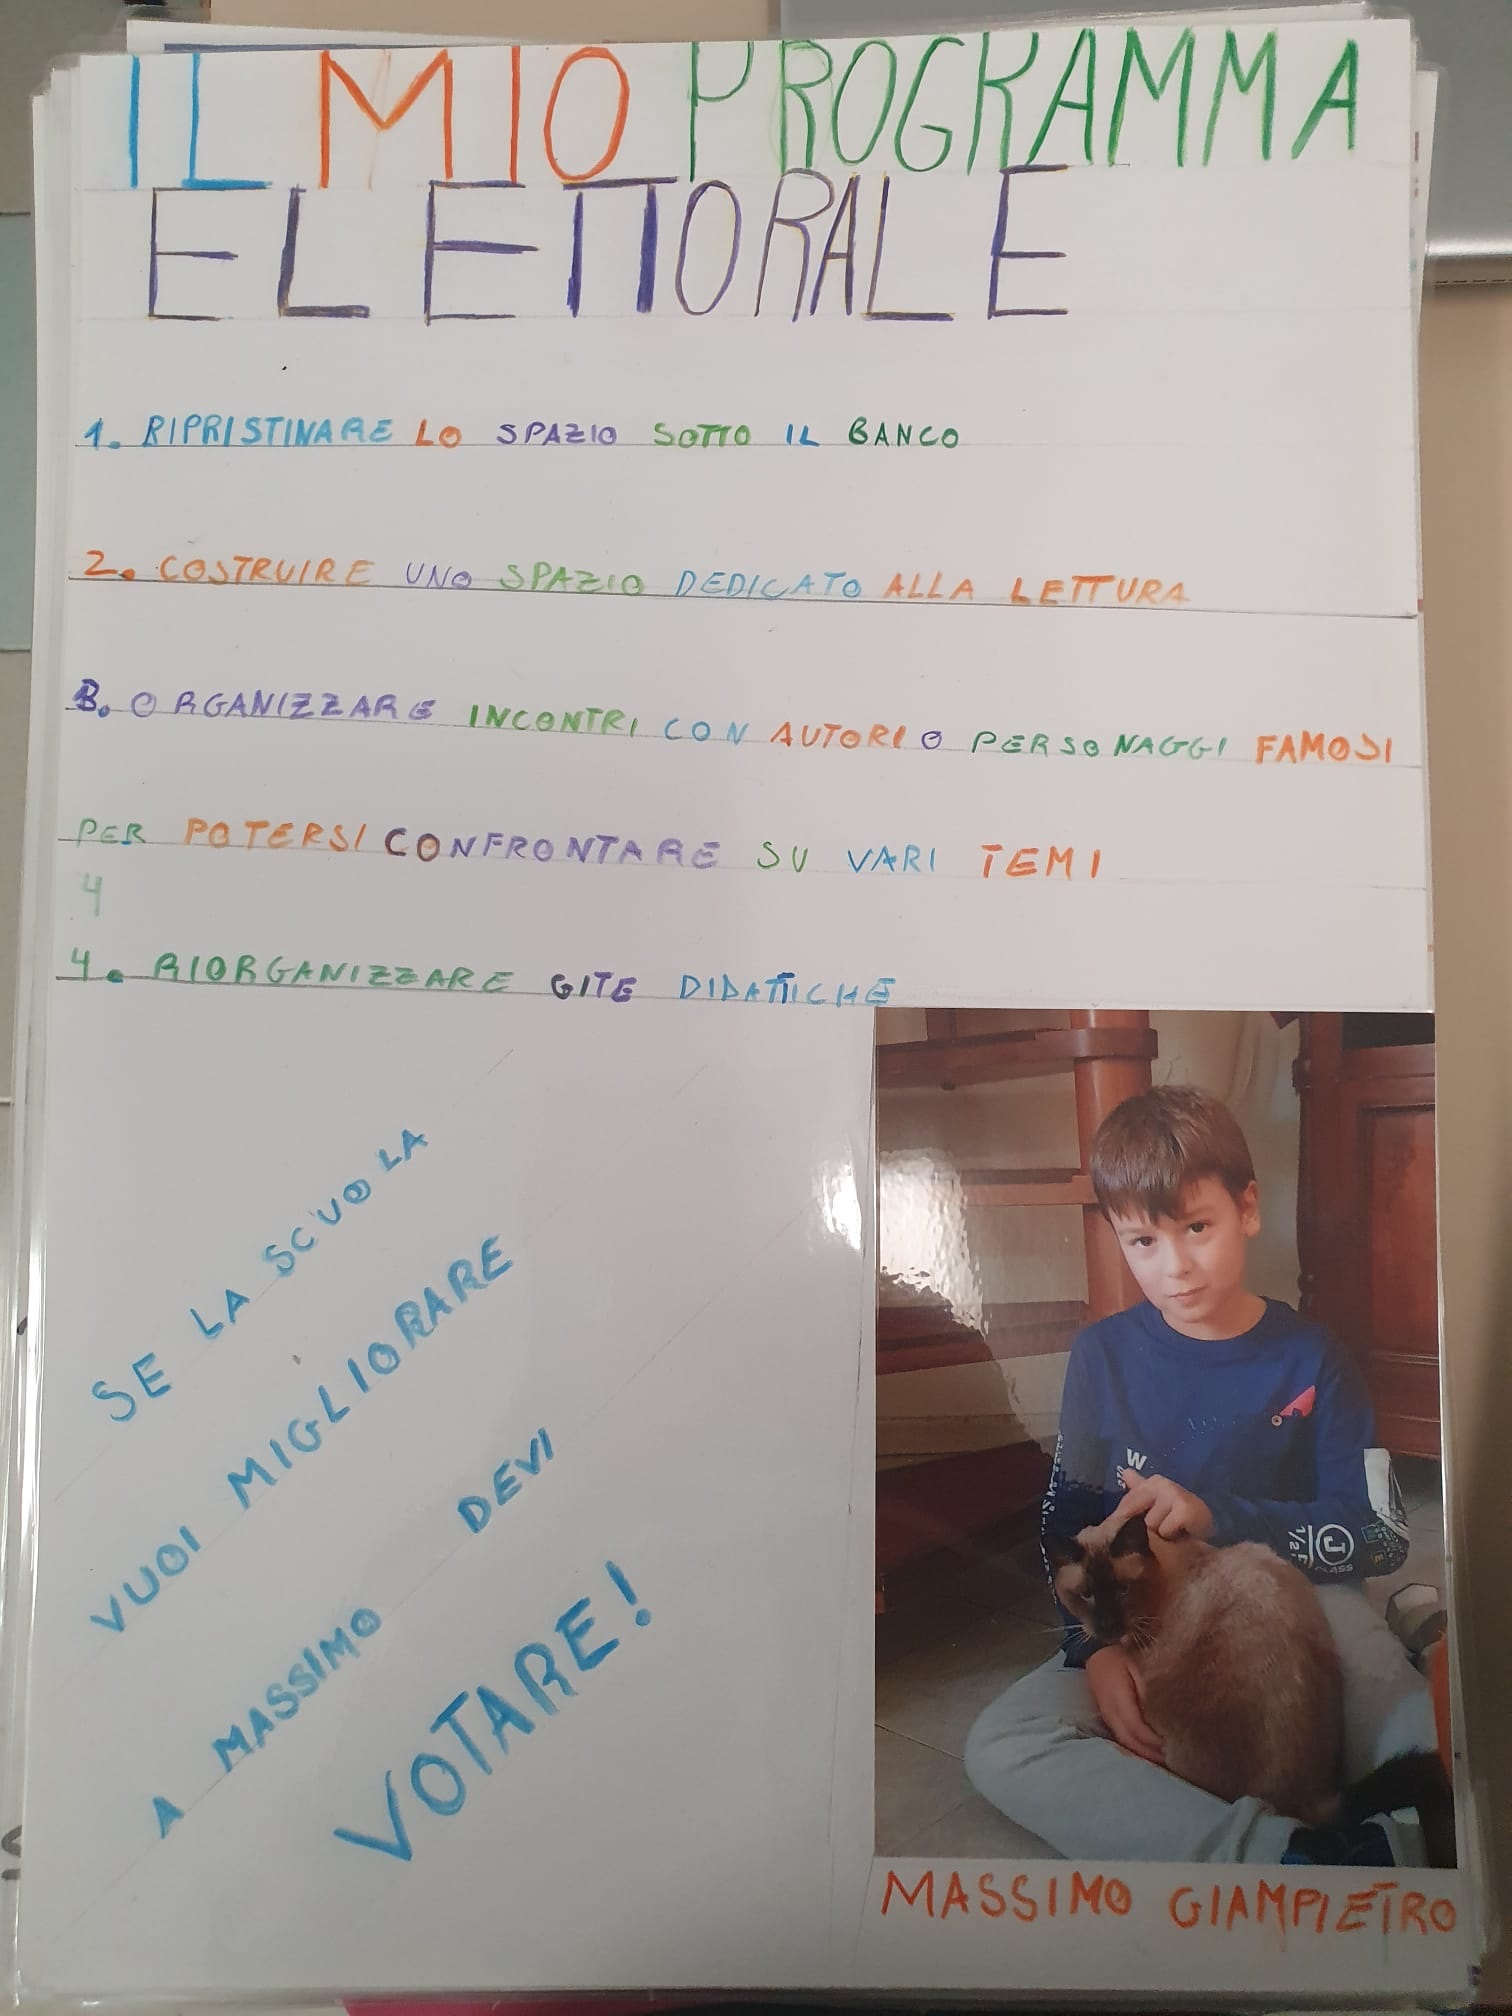 IL MIO PROGRAMMA
ELETTORALE
1. RIPRISTINARE LO SPAZIO SOTTO IL BANCO
2. COSTRUIRE UNO SPAZIO DEDICATO ALLA LETTURA
3. ORGANIZZARE INCONTRI CON AUTORI O PERSONAGGI FAMOSI
PER POTERSI CONFRONTARE SU VARI TEMI
4
4. RIORGANIZZARE GITE DIDATTICHE
SE LA SCUOLA
VUOI MIGLIORARE
A MASSIMO DEVI
VOTARE!
W
J
1/2
CLASS
MASSIMO GIAMPIETRO